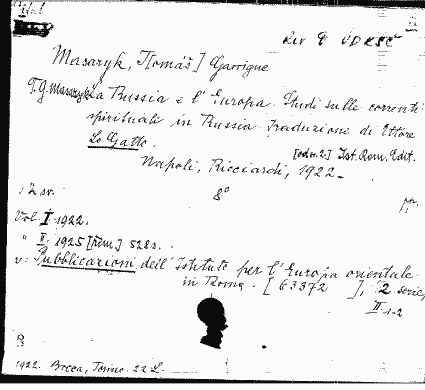 Ital.
Rev 9 UDKSČ
Masaryk, T[omáš] Garrigue
T. G. Masaryk: La Russia e l'Europa. Studi sulle correnti
spirituali in Russia. Traduzione di Ettore
Lo Gatto.
[od sv. 2.] Ist. Rom. Edit.
Napoli, Ricciardi, 1922-
2 sv. 8°
Vol. I. 1922.
" II. 1925 [Řím.] 528 s.
v: Pubblicazioni dell'Istituto per l'Europa orientale
in Roma. [63372 ], 2. serie,
II 1-2
1922. Bocca, Torino. 22 L.